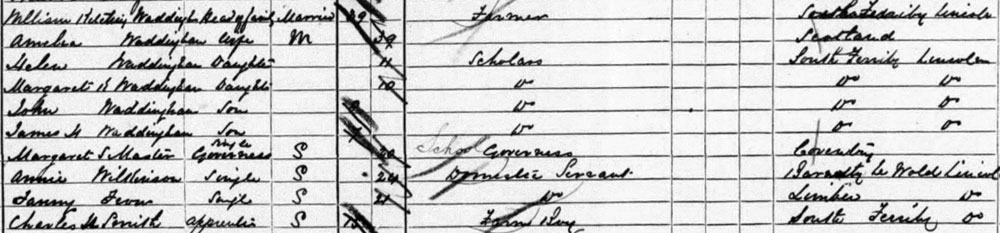 William Waddingham Head of family Married 39 Farmer South Ferriby Lincoln
Amelia Waddingham Wife M 39 Scotland
Helen Waddingham Daughter 11 Scholars South Ferriby Lincoln
Margaret E Waddingham Daughter 10 Do Do Do
John Waddingham Son Do Do Do
James H Waddingham Son Do Do Do
Margaret S Master Single Governess S School Governess Coventry
Annie Wilkinson Single S 24 Domestic Servant Barnetby le Wold Lincoln
Fanny Single S 21 Do Limber Do
Charles H Smith apprentice S 15 Farm Boy South Ferriby Do